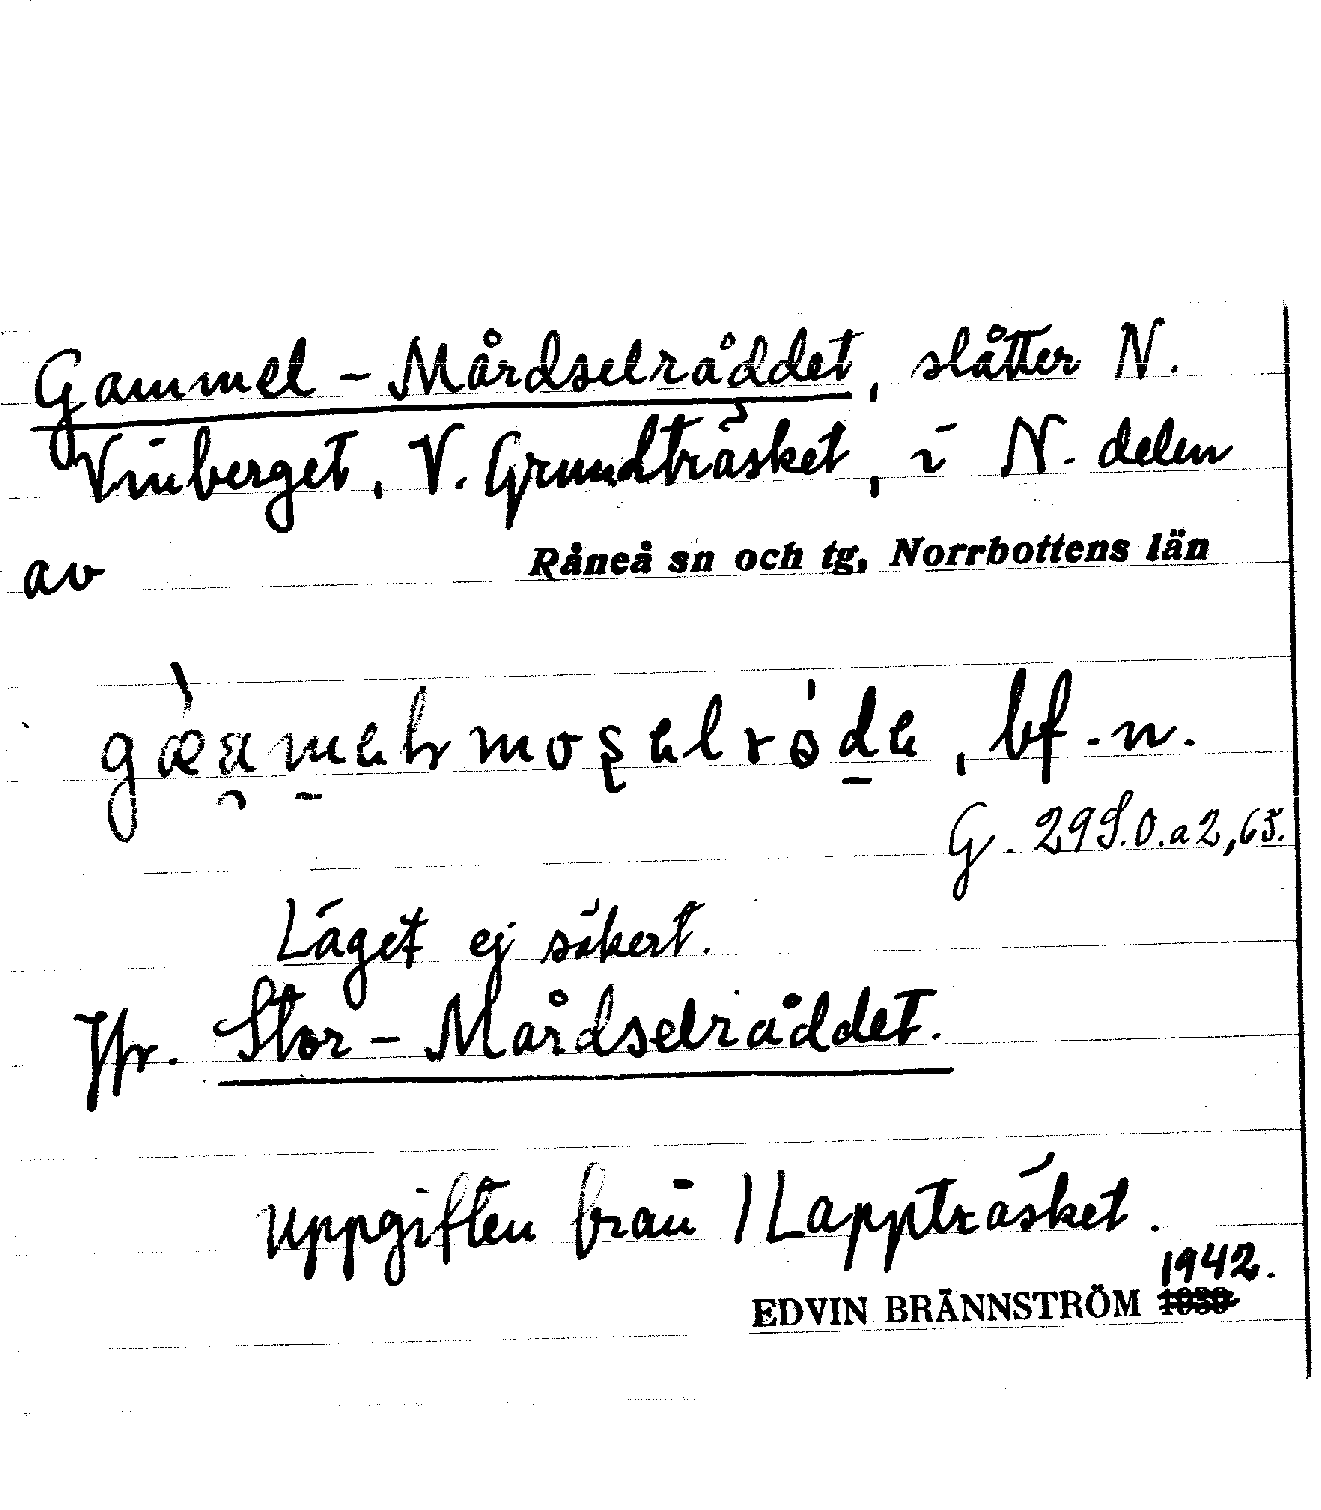 Gammel-Mårdselråddet, slåtter N.
Vinberget, V. Grundträsket, i N. delen
av Råneå sn och tg, Norrbottens län
bf. n.
G. 29S.O.a2,65.
Läget ej säkert.
Jfr. Stor-Mårdselråddet.
Uppgiften från 1 Lappträsket.
1942.
EDVIN BRÄNNSTRÖM 1930